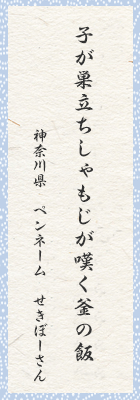 子が巣立ちしゃもじが嘆く釜の飯
神奈川県　ペンネーム　せきぼーさん